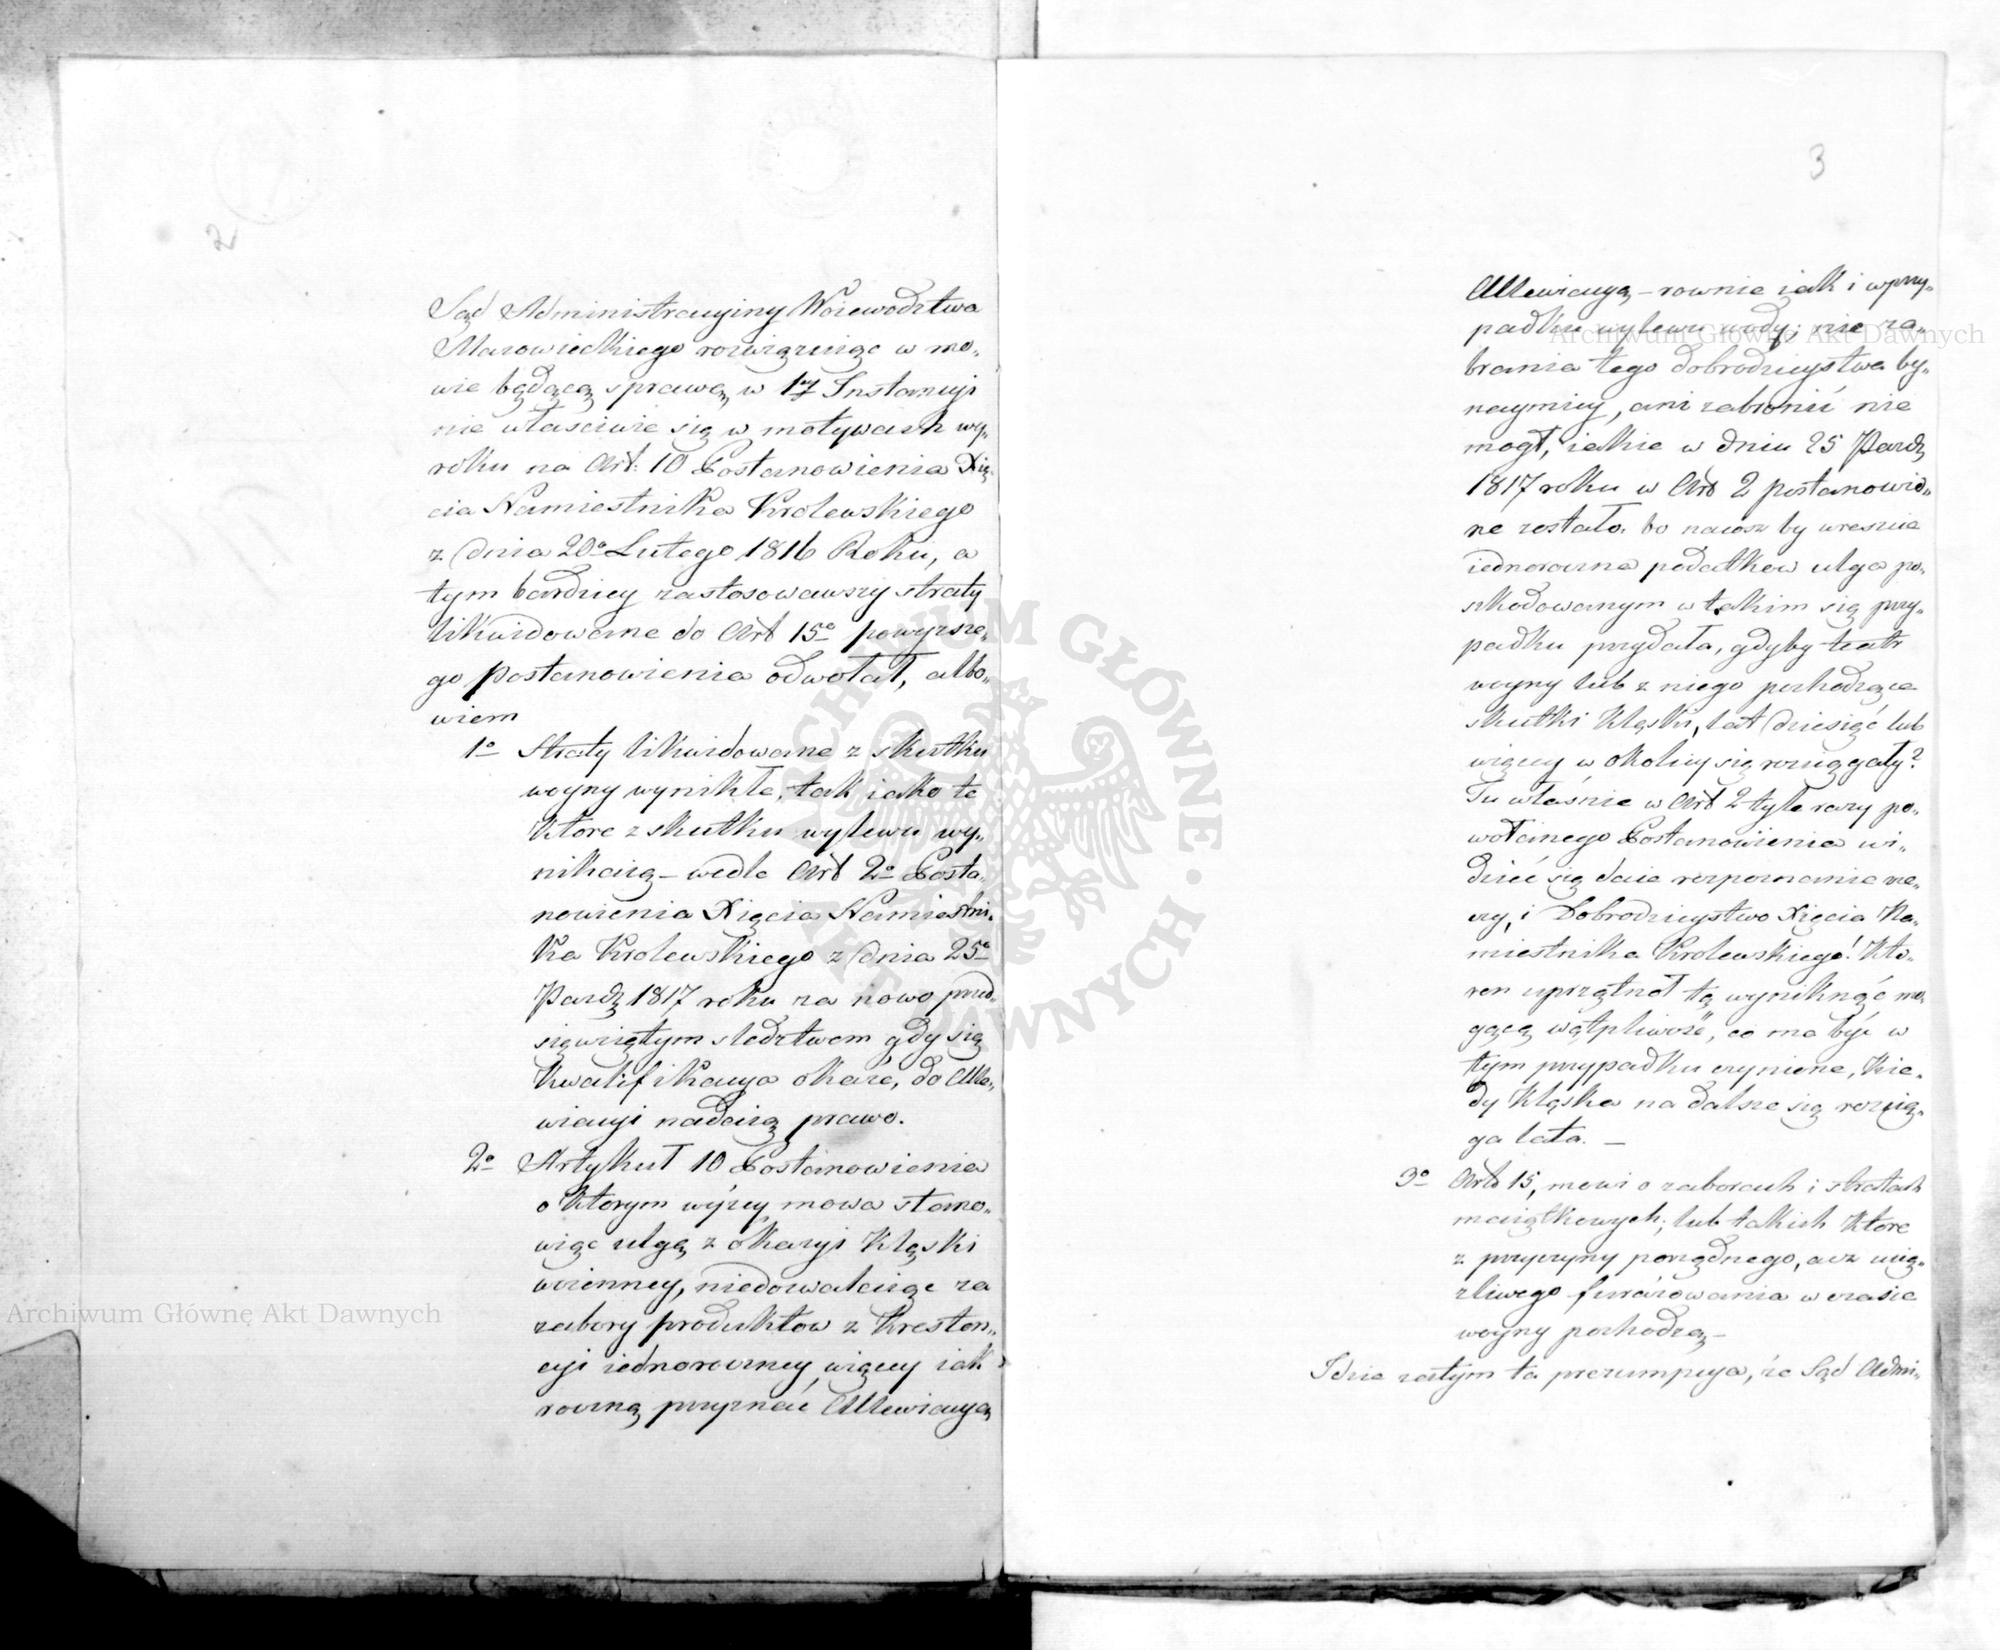 2
Sąd Administracyiny Woiewodztwa
Mazowieckiego rozwiązuiąc w mo„
wie będącą sprawę, w 1ey Instancyi
nie właściwie się w motywach wy„
roku na Art: 10 Postanowienia Xię„
cia Namiestnika Krolewskiego
z dnia 20o Lutego 1816 Roku, a
tym bardziey zastosowawszy straty
likwidowane do Art 15o powyzsze„
go postanowienia odwołał, albo„
wiem
1o Straty likwidowane z skutku
woyny wynikłe, tak iako te
Ktore z skutku wylewu wy„
nikaią – wedle Art 2o Posta„
nowienia Xięcia Namiestni„
ka Krolewskiego z dnia 25o
Pazdz 1817 roku na nowo przed„
sięwziętym sledztwem gdy się
Kwalifikacya okaże, do Alle„
wiacyi nadaią prawo.
2o Artykuł 10 Postanowienia
o Ktorym wyżey mowa stano„
wiąc ulgę z okazyi Klęski
woienney, niedozwalaiąc za
zabory produktow z Kresten„
cyi iednoroczney więcey iak
roczną przyznać Allewiacyą
3
Allewiacyą – rownie iak i w przy„
padku wylewu wody; nie za„
brania tego dobrodzieystwa by„
naymiey, ani zabronić nie
mogł, iakie w dniu 25 Pazdz
1817 roku w Art 2 postanowio„
ne zostało. bo na coz by wreszcie
iednoroczna podatkow ulga po„
szkodowanym w takim się przy„
padku przydała, gdyby teatr
woyny lub z niego pochodzące
skutki Klęski, lat dziesięć lub
więcey w okolicy się rozciągały?
Tu właśnie w Art 2 tyle razy po„
wołanego Postanowienia wi„
dzieć się daie rozpoznanie rze„
czy, i Dobrodzieystwo Xięcia Na„
miestnika Krolewskiego! Kto„
ren uprzątnoł tę wyniknąć mo„
gącą wątpliwość, co ma być w
tym przypadku czynione, Kie„
dy Klęska na dalsze się rozcią„
ga lata. –
3o Art 15, mowi o zaborach i stratach
maiątkowych; lub takich Ktore
z przyczyny porządnego, acz ucią„
zliwego furażowania w czasie
woyny pochodzą –
Idzie zatym ta prezumpcya, że Sąd Admi„
Archiwum Głównę Akt Dawnych
Archiwum Głównę Akt Dawnych
ARCHIWUM GŁÓWNE · AKT DAWNYCH ·